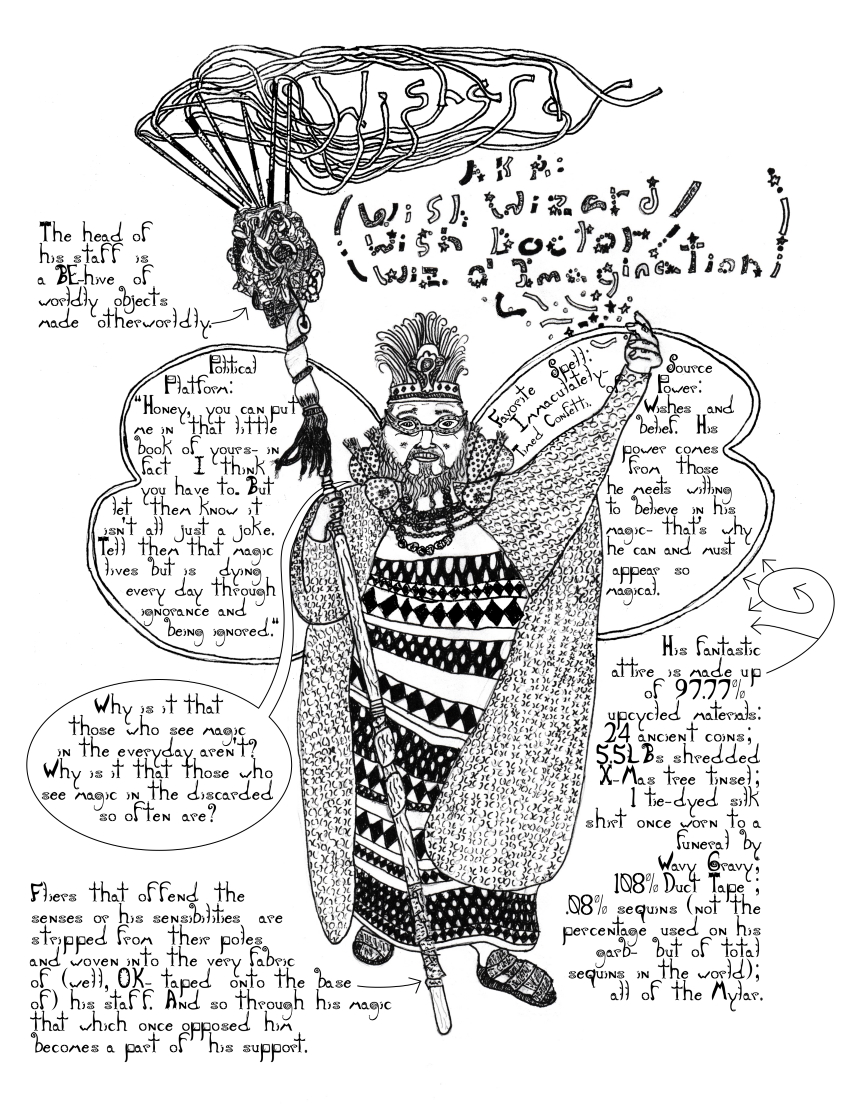 AKA:
(Wish Wizard/
Wish Doctor/
Wiz o' Imagination)
The head of
his staff is
a BE-hive of
worldly objects
made otherworldly.
Political
Platform:
"Honey, you can put
me in that little
book of yours- in
fact I think
you have to. But
let them know it
isn't all just a joke.
Tell them that magic
lives but is dying
every day through
ignorance and
being ignored."
Favorite Spell:
Immaculately-
Timed Confetti.
Source
Power:
Wishes and
belief. His
power comes
from those
he meets willing
to believe in his
magic- that's why
he can and must
appear so
magical.
Why is it that
those who see magic
in the everyday aren't?
Why is it that those who
see magic in the discarded
so often are?
His fantastic
attire is made up
of 97.77%
upcycled materials:
24 ancient coins;
5.5LBs shredded
X-Mas tree tinsel;
1 tie-dyed silk
shirt once worn to a
funeral by
Wavy Gravy;
108% Duct Tape ;
.08% sequins (not the
percentage used on his
garb- but of total
sequins in the world);
all of the Mylar.
Fliers that offend the
senses or his sensibilities are
stripped from their poles
and woven into the very fabric
of (well, OK- taped onto the base
of) his staff. And so through his magic
that which once opposed him
becomes a part of his support.